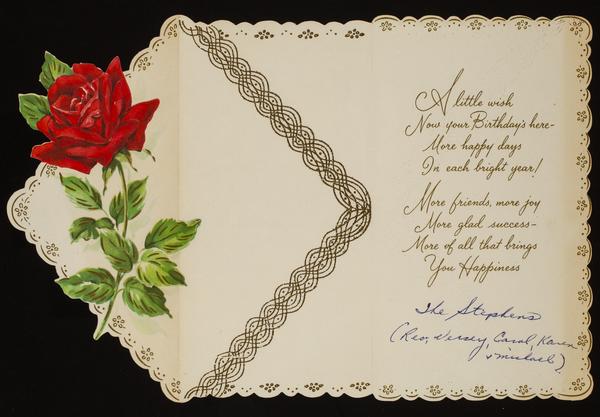 A little wish
Now your Birthday's here-
More happy days
In each bright year!
More friends, more joy
More glad success-
More of all that brings
You Happiness
The Stephens
(Reo, Versey, Carol, Karen
& Michael)